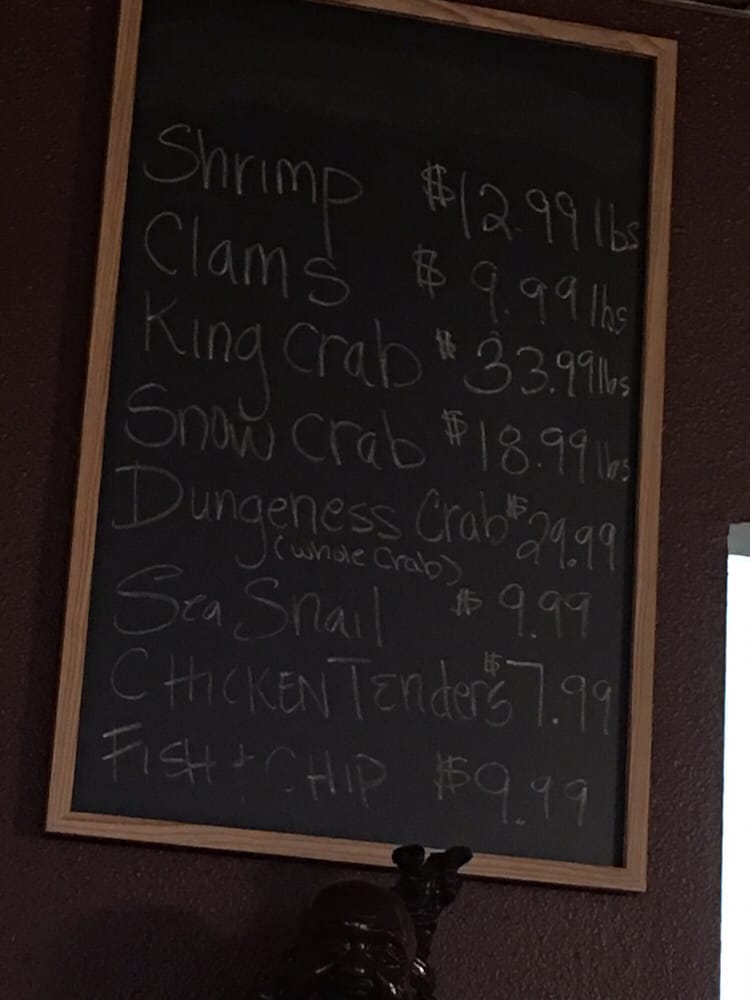 Shrimp $12.99 lbs
Clams $9.99 lbs
King Crab $33.99 lbs
Snow Crab $18.99 lbs
Dungeness Crab $29.99
(whole crab)
Sea Snail $9.99
CHICKEN Tenders $7.99
FISH & CHIP $9.99